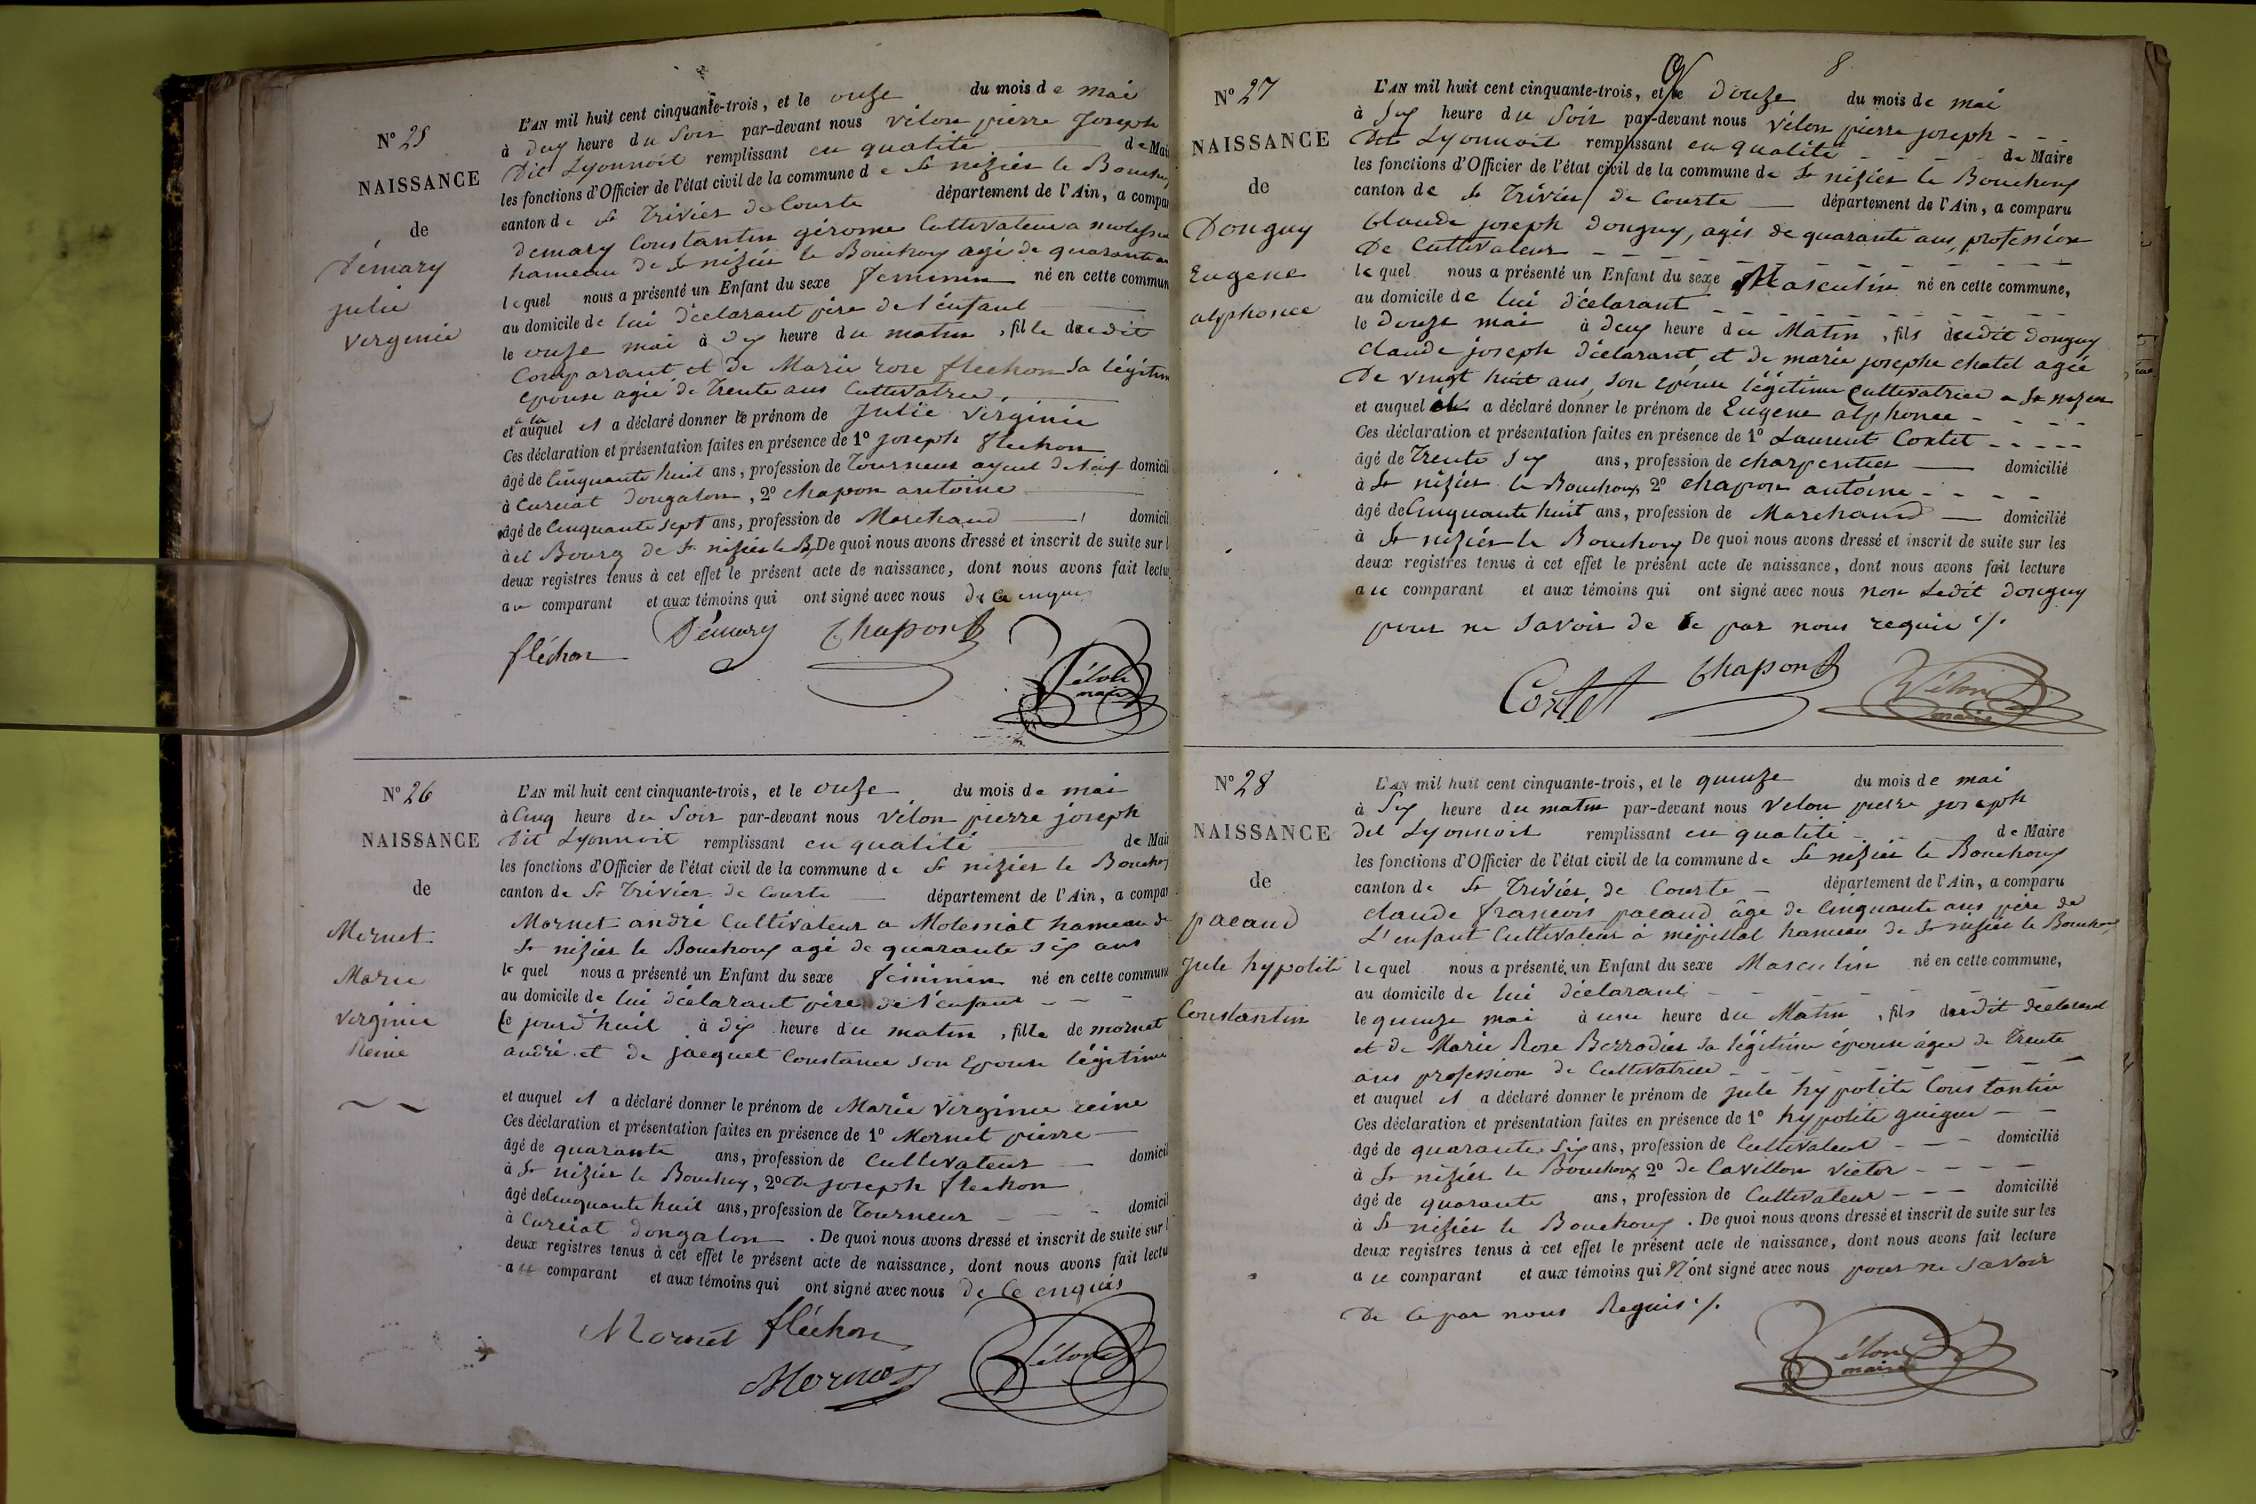 N° 25
NAISSANCE
de
Démary
julie
Virginie
L'AN mil huit cent cinquante-trois, et le onze du mois de mai
à deux heure du Soir par-devant nous vélon pierre Joseph
Dit Lyonnois remplissant en qualité de Mai
les fonctions d'Officier de l'état civil de la commune de St nizier le Bouchoux
canton de St Trivier de Courte département de l'Ain, a compar
Demary Constantin gérome Cultivateur a
hameau de St nizier le Bouchoux agé de quarante an
lequel nous a présenté un Enfant du sexe feminin né en cette commun
au domicile de lui déclarant père de l'enfant
le onze mai à dix heure du matin, fille dudit
Comparant et de Marie rose flechon Sa légitim
epouse agée de Trente ans Cultivatrice
à la
et auquel il a déclaré donner le prénom de Julie Virginie
Ces déclaration et présentation faites en présence de 1° joseph flechon
âgé de Cinquante huit ans, profession de Tourneur ayeul domicil
à Curciat dongalon, 2° chapon antoine
âgé de Cinquante sept ans, profession de Marchand domicil
à u Bourg de St nizier le B, De quoi nous avons dressé et inscrit de suite sur l
deux registres tenus à cet effet le présent acte de naissance, dont nous avons fait lectu
au comparant et aux témoins qui ont signé avec nous de ce enquis
fléchon Démary Chapon
Vélon
maire
N° 26
NAISSANCE
de
Mornet
Marie
Virginie
Reine
L'AN mil huit cent cinquante-trois, et le onze du mois de mai
à Cinq heure du Soir par-devant nous Vélon pierre joseph
Dit Lyonnoit remplissant en qualité de Mai
les fonctions d'Officier de l'état civil de la commune de St nizier le Bouchoux
canton de St Trivier de Courte département de l'Ain, a compar
Mornet andré Cultivateur a Molessiat hameau de
St nizier le Bouchoux agé de quarante six ans
lequel nous a présenté un Enfant du sexe feminin né en cette commune
au domicile de lui déclarant père de l'enfant
le jourd'huit à dix heure du matin, fille de mornet
andré et de jacquet Constance son Epouse légitime
et auquel il a déclaré donner le prénom de Marie Virginie reine
Ces déclaration et présentation faites en présence de 1° Mornet pierre
âgé de quarante ans, profession de Cultivateur domicil
à St nizier le Bouchoux, 2° joseph flechon
âgé de Cinquante huit ans, profession de Tourneur domicil
à Curciat dongalon. De quoi nous avons dressé et inscrit de suite sur l
deux registres tenus à cet effet le présent acte de naissance, dont nous avons fait lectu
au comparant et aux témoins qui ont signé avec nous de Ce enquis
Mornet fléchon
Mornet
Vélon
8
N° 27
NAISSANCE
de
Donguy
Eugene
alphonce
L'AN mil huit cent cinquante-trois, et le Douze du mois de mai
à Six heure du Soir par-devant nous Vélon pierre joseph
Dit Lyonnoit remplissant en qualité de Maire
les fonctions d'Officier de l'état civil de la commune de St nizier le Bouchoux
canton de St Trivier de Courte département de l'Ain, a comparu
Claude joseph donguy, agés de quarante ans, profession
De Cultivateur
lequel nous a présenté un Enfant du sexe Masculin né en cette commune,
au domicile de lui déclarant
le Douze mai à deux heure du Matin, fils dudit donguy
claude joseph déclarant, et de marie josephe chatel agée
De vingt huit ans, son epouse légitime Cultivatrice a St nizier
et auquel il a déclaré donner le prénom de Eugene alphonce
Ces déclaration et présentation faites en présence de 1° Laurent Contet
âgé de Trente Six ans, profession de charpentier domicilié
à St nizier le Bouchoux, 2° chapon antoine
âgé de Cinquante huit ans, profession de Marchand domicilié
à St nizier le Bouchoux De quoi nous avons dressé et inscrit de suite sur les
deux registres tenus à cet effet le présent acte de naissance, dont nous avons fait lecture
au comparant et aux témoins qui ont signé avec nous non Ledit donguy
pour ne Savoir de ce par nous requis ./.
Contet Chapon
Vélon
maire
N° 28
NAISSANCE
de
pacaud
Jule hypolite
Constantin
L'AN mil huit cent cinquante-trois, et le quinze du mois de mai
à Six heure du matin par-devant nous Velon pierre joseph
dit Lyonnois remplissant en qualité de Maire
les fonctions d'Officier de l'état civil de la commune de St nizier le Bouchoux
canton de St Trivier de Courte département de l'Ain, a comparu
claude francois pacaud âge de Cinquante ans père de
L'enfant Cultivateur à mépillat hameau de St nizier le Bouchoux
lequel nous a présenté un Enfant du sexe Masculin né en cette commune,
au domicile de lui déclarant
le quinze mai à une heure du Matin, fils dudit déclarant
et de Marie Rose Berrodier Sa légitime épouse âgée de Trente
ans profession de Cultivatrice
et auquel il a déclaré donner le prénom de jule hypolite Constantin
Ces déclaration et présentation faites en présence de 1° hypolite guigue
âgé de quarante Six ans, profession de Cultivateur domicilié
à St nizier le Bouchoux, 2° de Cavillon Victor
âgé de quarante ans, profession de Cultivateur domicilié
à St nizier le Bouchoux. De quoi nous avons dressé et inscrit de suite sur les
deux registres tenus à cet effet le présent acte de naissance, dont nous avons fait lecture
au comparant et aux témoins qui N'ont signé avec nous pour ne savoir
De ce par nous Requis ./.
Vélon
maire